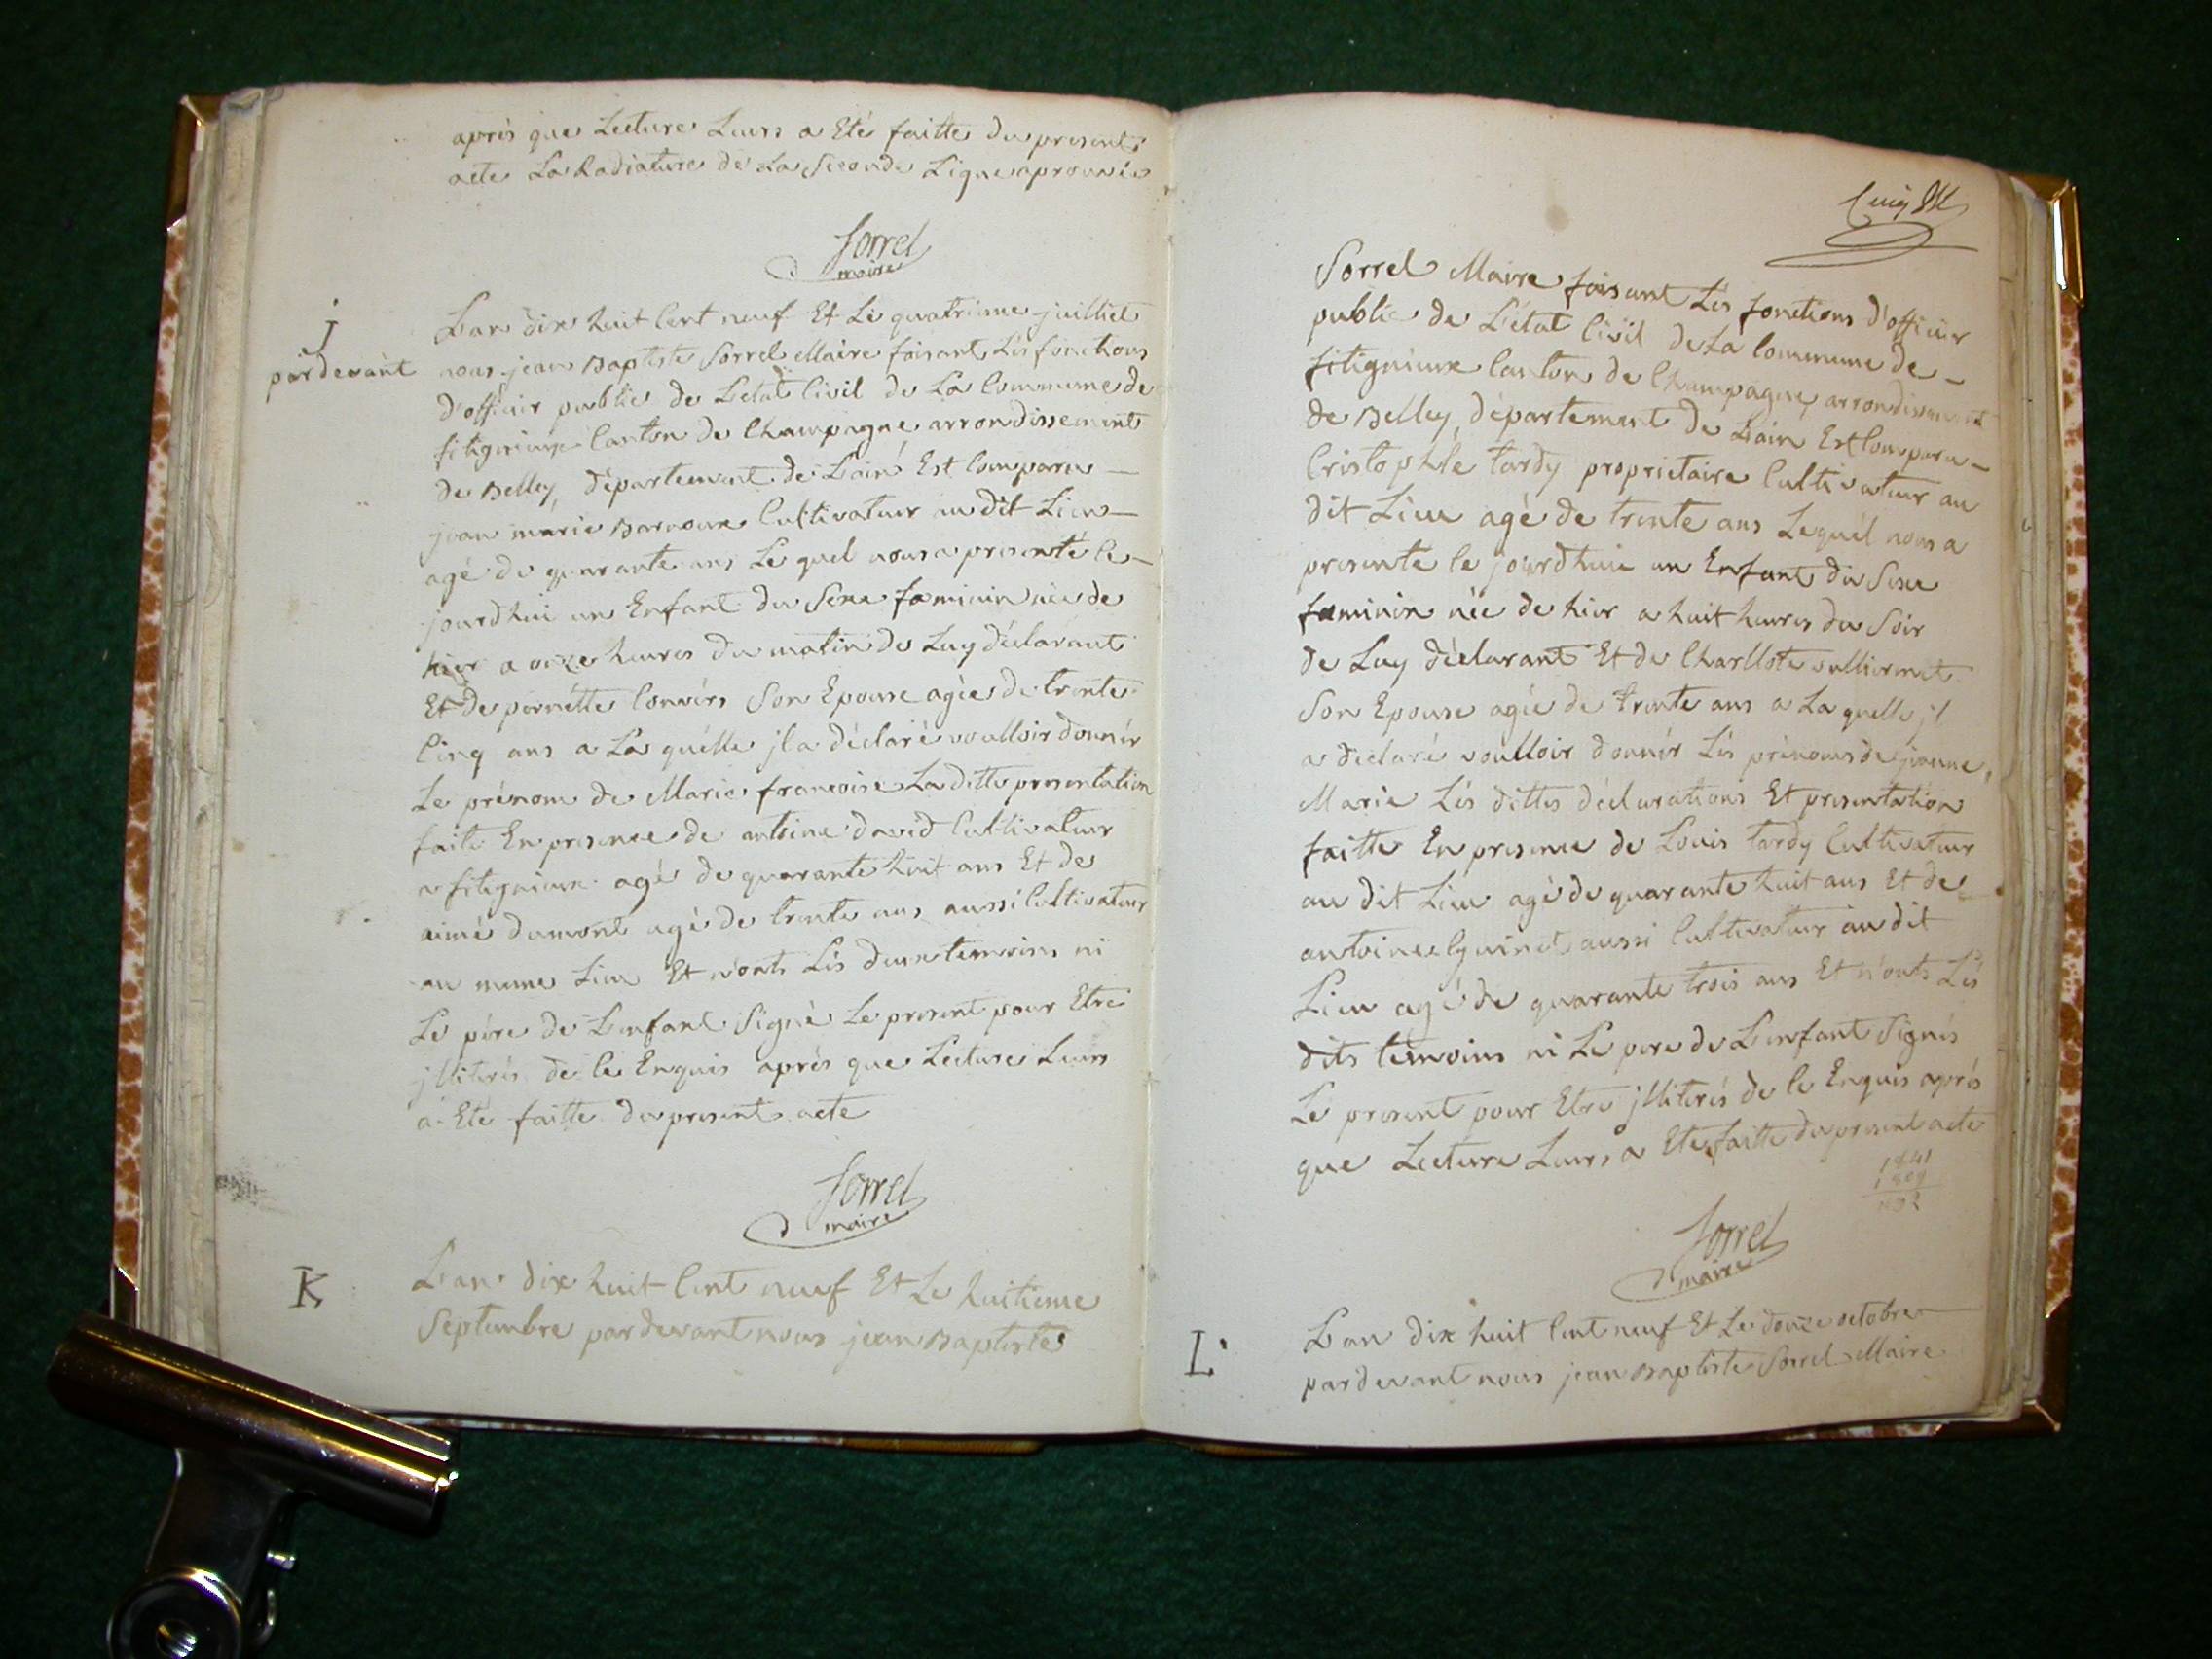 après que Lecture Leurs a Eté faitte du present
acte La Radiature de La Seconde Ligne aprouvée
Sorrel
maire
J
L'an dix huit Cent neuf Et Le quatrieme juilliet
pardevant
nous jean Baptiste Sorrel Maire faisant Lés fonctions
d'officiér public de L'etat Civil de La Commune de
fitignieux Canton de Champagne, arrondissement
de Belley, département de L'ain, Est Comparu —
jean marie Cultivateur au dit Lieu —
agé de quarante ans Le quel nous a presenté Ce —
jourdhui un Enfant du Sexe faminin née de
hier a onze heures du matin de Luy déclarant
Et de pernétte Convérs Son Epouse agée de trente
Cinq ans a La quélle jl a déclaré voulloir donnér
Le prénom de Marie françoise La ditte presentation
faite En presence de antoine david Cultivateur
a fitignieux agé de quarante huit ans Et de
aimé dumont agé de trente ans aussi Cultivateur
au meme Lieu Et n'onts Lés deux temoins ni
Le pére de L'enfant Signé Le present pour Etre
jllitérés de Ce Enquis aprés que Lecture Leurs
a Eté faitte du present acte
Sorrel
maire
K
L'an dix huit Cent neuf Et Le huitieme
Septembre pardevant nous jean Baptiste
Sorrel Maire faisant Lés fonctions d'officiér
public de L'état Civil de La Commune de —
fitignieux Canton de Champagne, arrondissement
de Belley, département de L'ain Est Comparu —
Cristophle tardy proprietaire Cultivateur au
dit Lieu agé de trente ans Lequél nous a
presenté Ce jourdhui un Enfant du Sexe
faminin née de hier a huit heures du Soir
de Luy déclarant Et de Charllote vulliermet
Son Epouse agée de trente ans a La quelle jl
a declaré voulloir donnér Lés prénoms de jeanne,
Marie Lés dittes déclarations Et presentation
faitte En presence de Louis tardy Cultivateur
au dit Lieu agé de quarante huit ans Et de
antoine Cyuinet aussi Cultivateur au dit
Lieu agé de quarante trois ans Et n'onts Lés
dits temoins ni Le pere de L'enfant Signés
Le present pour Etre jllitérés de Ce Enquis aprés
que Lecture Leurs a Eté faitte du present acte
1841
1809
Sorrel
maire
L
L'an dix huit Cent neuf Et Le douze octobre
pardevant nous jean Baptiste Sorrel Maire